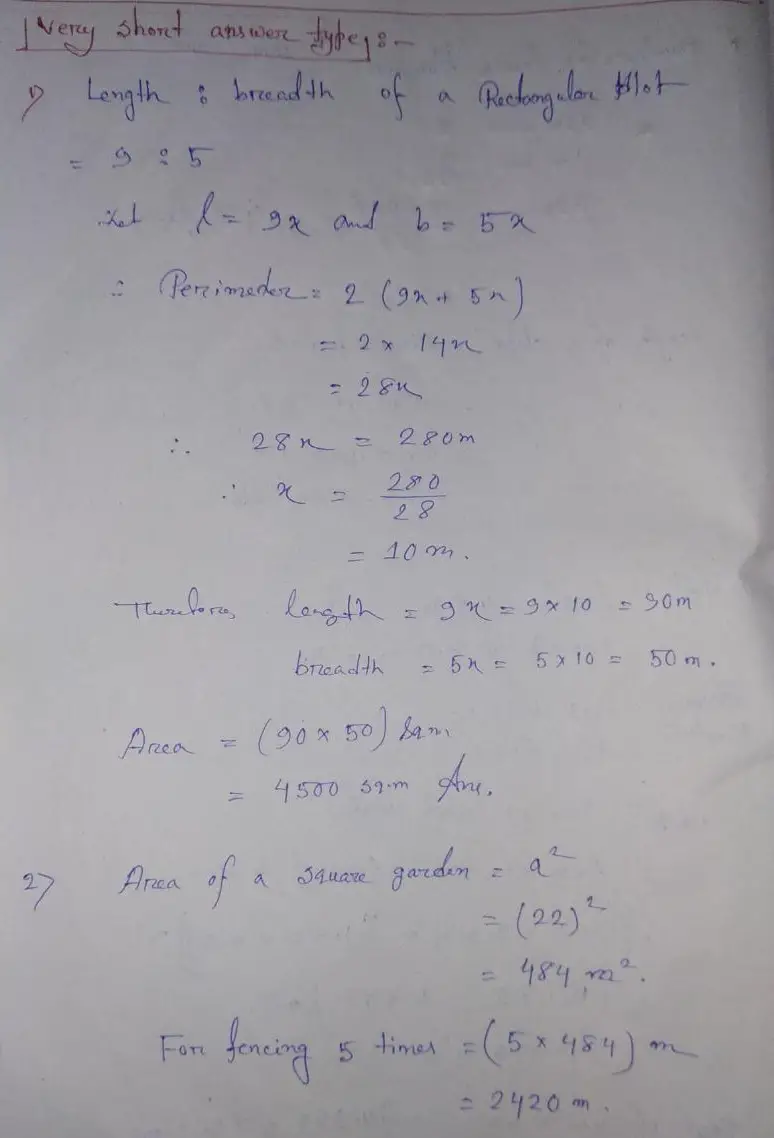 Very short answer type :-
1) Length : breadth of a Rectangular Plot
= 9 : 5
Let l = 9x and b = 5x
∴ Perimeder = 2 (9x + 5x)
= 2 × 14x
= 28x
∴ 28x = 280m
∴ x = 280/28
= 10 m.
Therefore, length = 9x = 9 × 10 = 90m
breadth = 5x = 5 × 10 = 50 m.
Area = (90 × 50) sqm
= 4500 sq.m Ans.
2) Area of a square garden = a²
= (22)²
= 484 m².
For fencing 5 times = (5 × 484) m
= 2420 m.